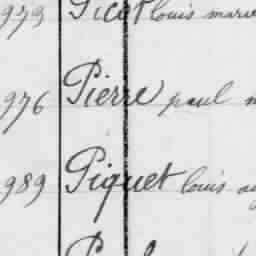 973 Picot louis marie
976 Pierre paul
989 Piquet louis